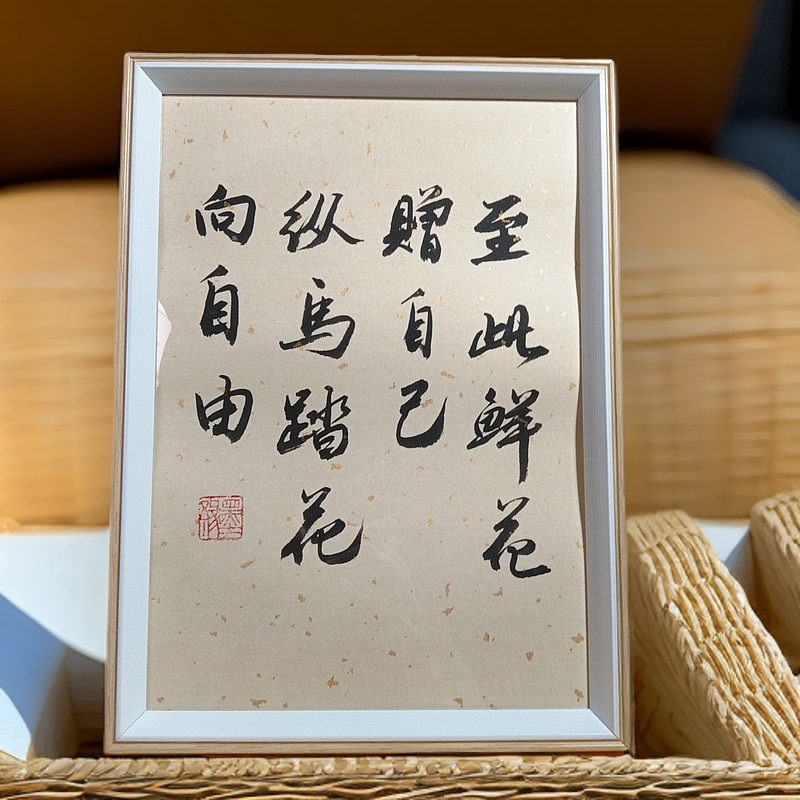 至此鲜花
赠自己
纵马踏花
向自由